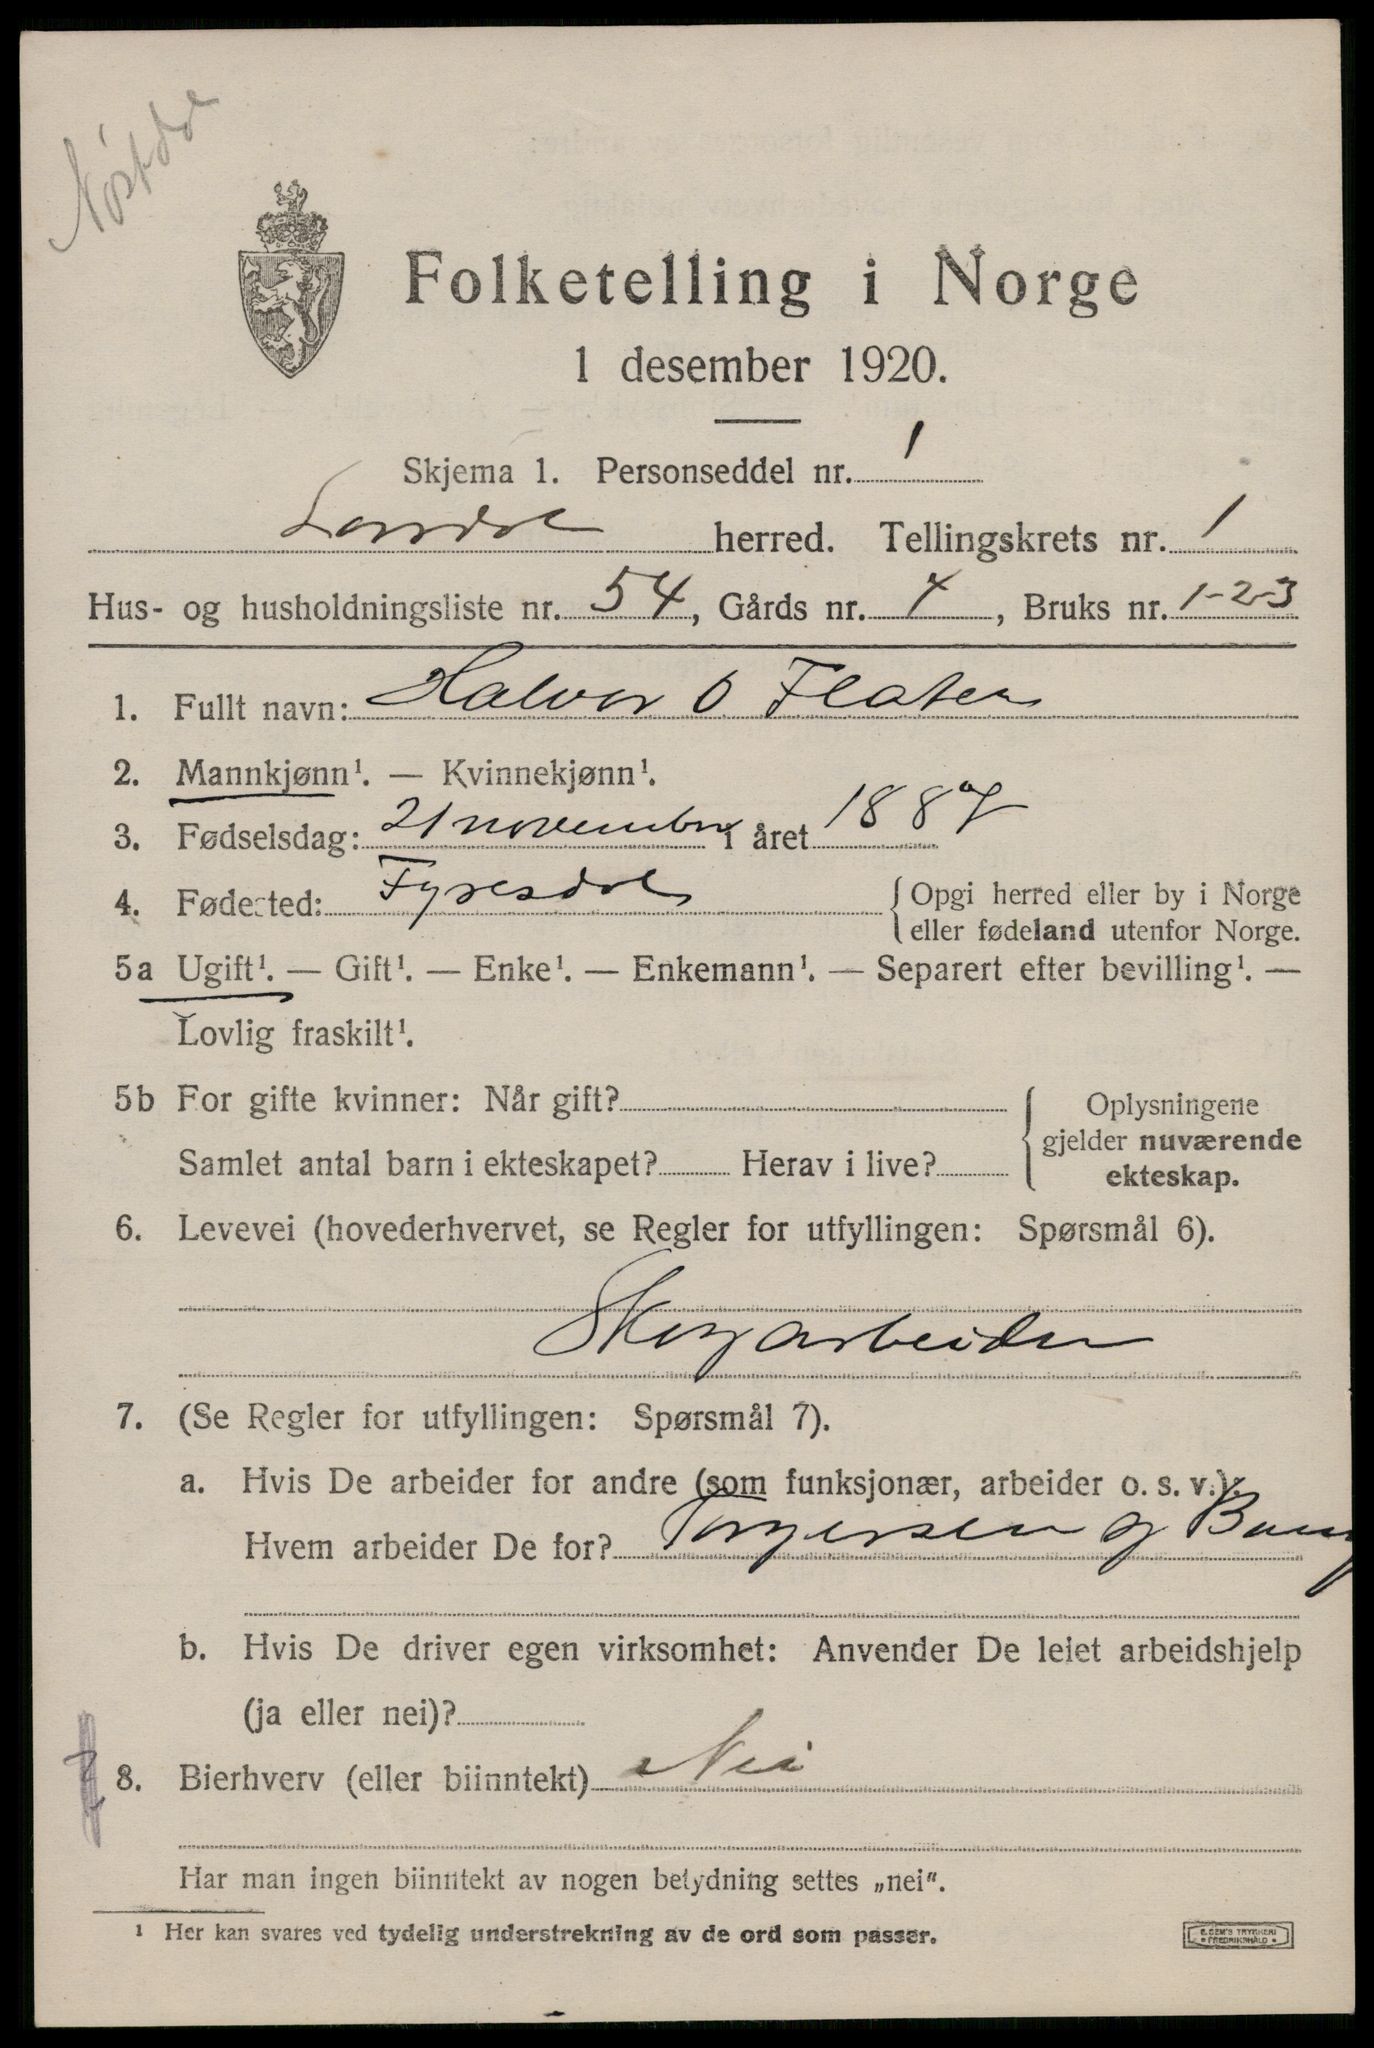 Nästdøl
Folketelling i Norge
1 desember 1920.
Skjema 1. Personseddel nr. 1
Laardal herred. Tellingskrets nr. 1
Hus- og husholdningsliste nr. 54, Gårds nr. 4, Bruks nr. 1-2-3
1. Fullt navn: Halvor O Flaten
2. Mannkjønn¹. — Kvinnekjønn¹.
3. Fødselsdag: 21 november i året 1887
4. Fødested: Fyresdal { Opgi herred eller by i Norge
eller fødeland utenfor Norge.
5a Ugift¹. — Gift¹. — Enke¹. — Enkemann¹. — Separert efter bevilling¹. —
Lovlig fraskilt¹.
5b For gifte kvinner: Når gift? { Oplysningene
gjelder nuværende
Samlet antal barn i ekteskapet? Herav i live? ekteskap.
6. Levevei (hovederhvervet, se Regler for utfyllingen: Spørsmål 6).
Skogarbeider
7. (Se Regler for utfyllingen: Spørsmål 7).
a. Hvis De arbeider for andre (som funksjonær, arbeider o. s. v.):
Hvem arbeider De for? Torgersen og
b. Hvis De driver egen virksomhet: Anvender De leiet arbeidshjelp
(ja eller nei)?
8. Bierhverv (eller biinntekt) Nei
Har man ingen biinntekt av nogen betydning settes „nei".
¹ Her kan svares ved tydelig understrekning av de ord som passer.
E. SEM'S TRYKKERI
FREDRIKSHALD